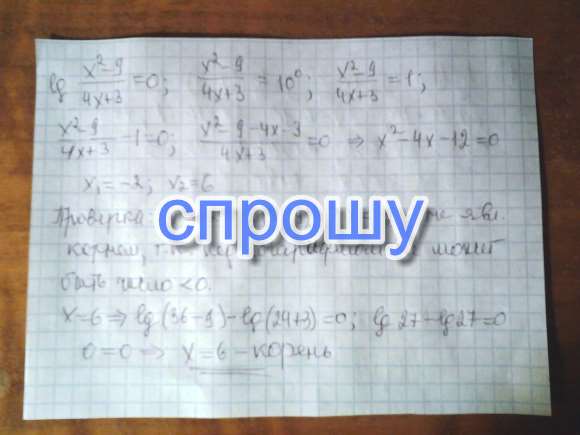 lg (x²-9)/(4x+3) = 0; (x²-9)/(4x+3) = 10⁰; (x²-9)/(4x+3) = 1;
(x²-9)/(4x+3) - 1 = 0; (x²-9-4x-3)/(4x+3) = 0 ⇒ x²-4x-12=0
x₁=-2; x₂=6
Проверка: не явл.
спрошу
корнем, т.к. может
быть число <0.
x=6 ⇒ lg(36-9)-lg(24+3)=0; lg27-lg27=0
0=0 ⇒ x=6 - корень